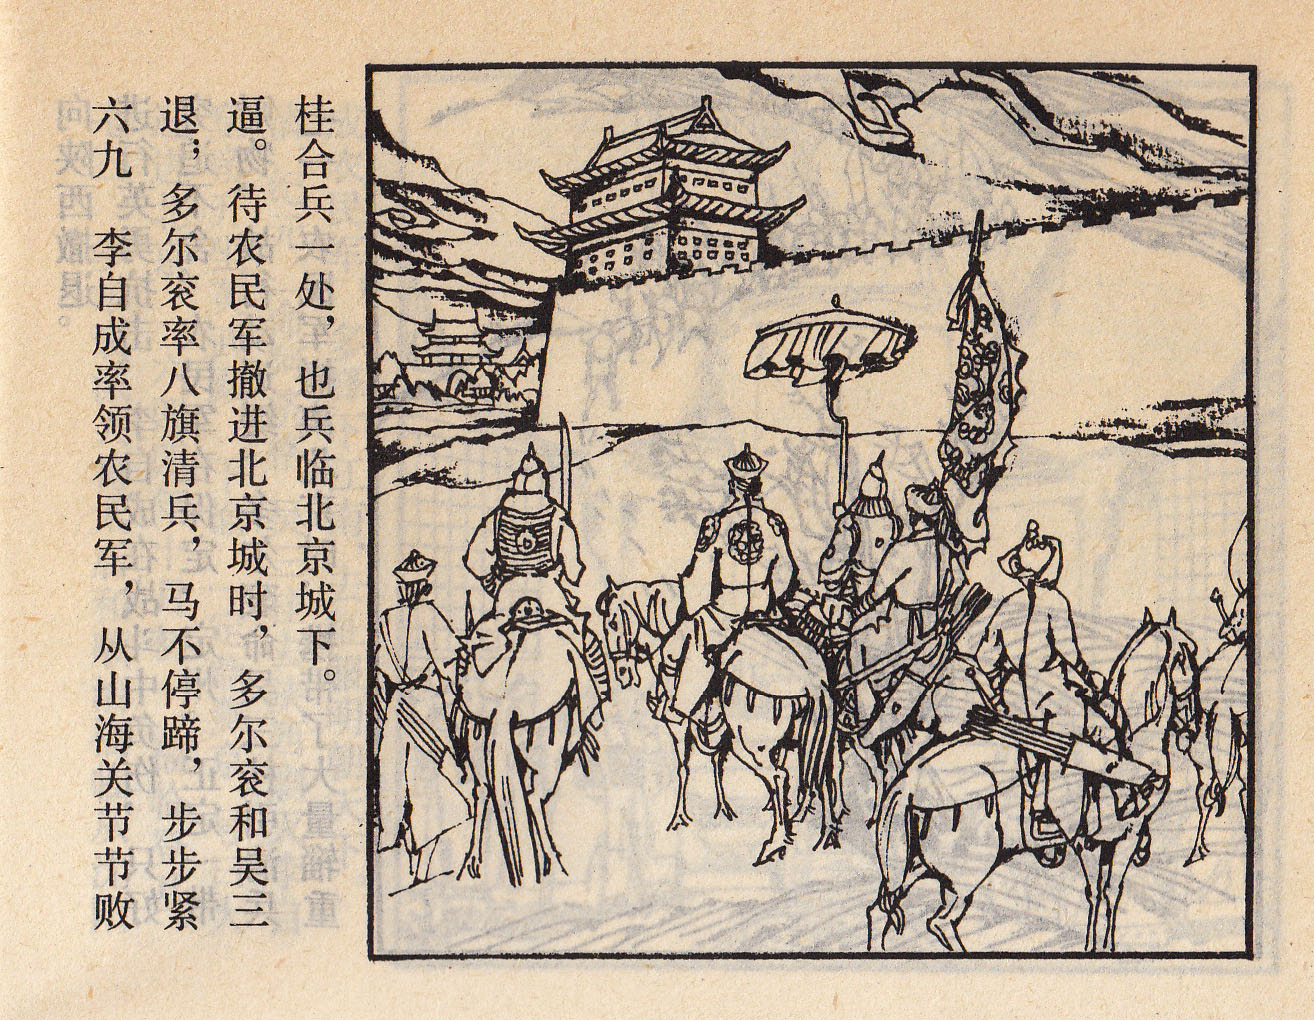 六九 李自成率领农民军，从山海关节节败
退；多尔衮率八旗清兵，马不停蹄，步步紧
逼。待农民军撤进北京城时，多尔衮和吴三
桂合兵一处，也兵临北京城下。